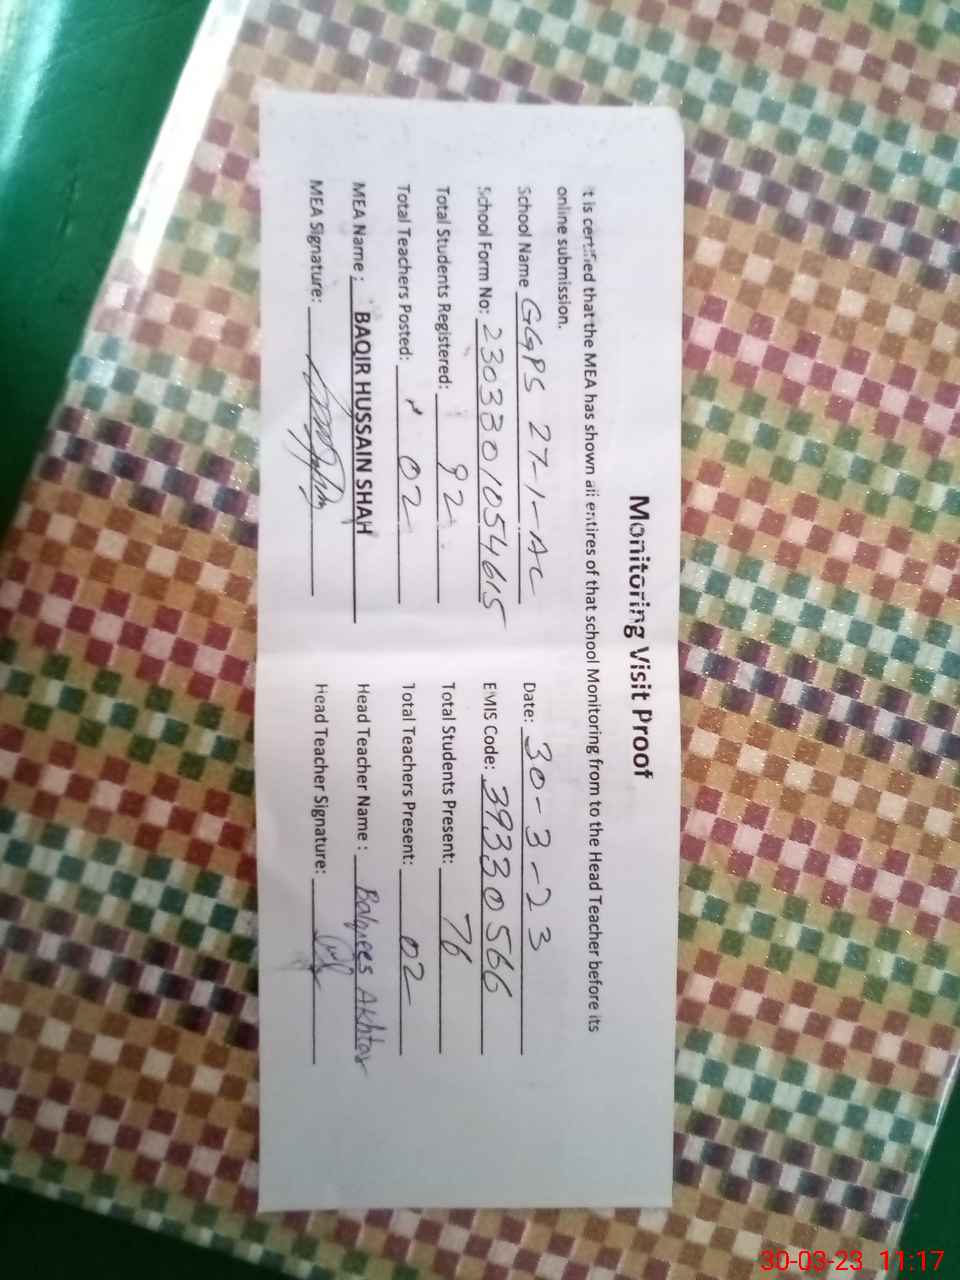 Monitoring Visit Proof
It is certified that the MEA has shown all entires of that school Monitoring from to the Head Teacher before its
online submission.
School Name GGPS 27-1-AC Date: 30-3-23
School Form No: 2303301054615 EMIS Code: 39330566
Total Students Registered: 92 Total Students Present: 76
Total Teachers Posted: 02 Total Teachers Present: 02
MEA Name: BAQIR HUSSAIN SHAH Head Teacher Name: Balqees Akhtar
MEA Signature: Head Teacher Signature:
30-03-23 11:17